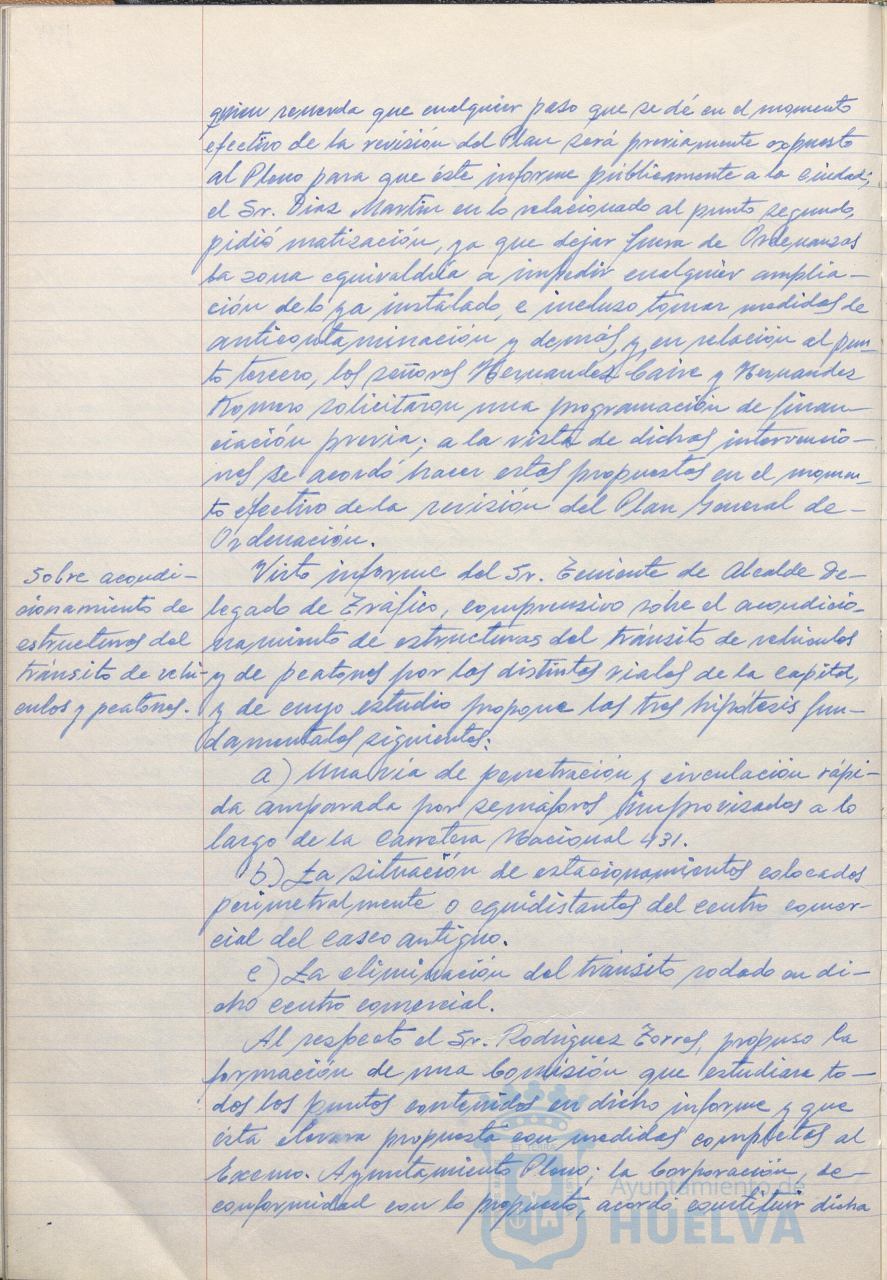 quien recuerda que cualquier paso que se dé en el momento
efectivo de la revisión del Plan será previamente expuesto
al Pleno para que éste informe públicamente a la ciudad;
el Sr. Díaz Martín en lo relacionado al punto segundo,
pidió matización, ya que dejar fuera de Ordenanzas
la zona equivaldría a impedir cualquier amplia-
ción de lo ya instalado, e incluso tomar medidas de
anticontaminación y demás, y, en relación al pun-
to tercero, los señores Hernandez Caire y Hernandez
Romero solicitaron una programación de finan-
ciación previa; a la vista de dichas intervencio-
nes se acordó hacer estas propuestas en el momen-
to efectivo de la revisión del Plan General de-
Ordenación.
Sobre acondi-
cionamiento de
estructuras del
tránsito de vehí-
culos y peatones.
Visto informe del Sr. Teniente de Alcalde De-
legado de Tráfico, comprensivo sobre el acondicio-
namiento de estructuras del tránsito de vehículos
y de peatones por los distintos viales de la capital,
y de cuyo estudio propone las tres hipótesis fun-
damentales siguientes:
a) Una vía de penetración y circulación rápi-
da amparada por semáforos improvizados a lo
largo de la Carretera Nacional 431.
b) La situación de estacionamientos colocados
perimetralmente o equidistantes del centro comer-
cial del casco antiguo.
c) La eliminación del tránsito rodado en di-
cho centro comercial.
Al respecto el Sr. Rodríguez Torres, propuso la
formación de una Comisión que estudiara to-
dos los puntos contenidos en dicho informe y que
ésta elevara propuesta con medidas completas al
Excmo. Ayuntamiento Pleno; la Corporación, de-
conformidad con lo propuesto, acordó constituir dicha
Ayuntamiento de
HUELVA